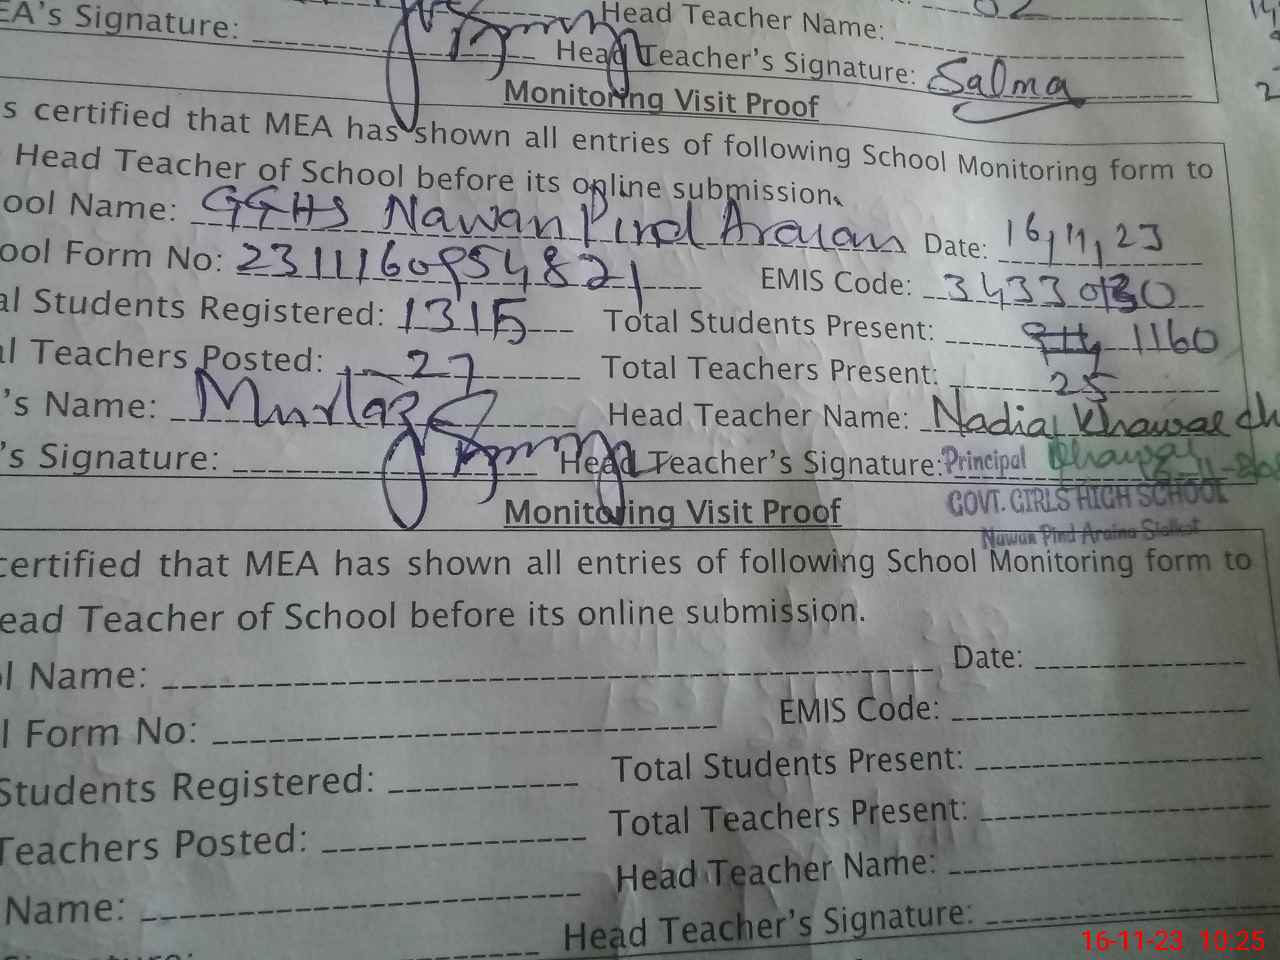 EA's Signature: Head Teacher Name:
Head Teacher's Signature: Salma
Monitoring Visit Proof
s certified that MEA has shown all entries of following School Monitoring form to
Head Teacher of School before its online submission.
ool Name: GGHS Nawan Pind Araian Date: 16,11,23
ool Form No: 231116095482 EMIS Code:
al Students Registered: 1315 Total Students Present: 1160
al Teachers Posted: 27 Total Teachers Present: 25
's Name: Mumtaz Head Teacher Name: Nadia
's Signature: Head Teacher's Signature: Principal
GOVT. GIRLS HIGH SCHOOL
Nawan Pind Araina Sialkot
Monitoring Visit Proof
certified that MEA has shown all entries of following School Monitoring form to
ead Teacher of School before its online submission.
l Name: Date:
l Form No: EMIS Code:
Students Registered: Total Students Present:
Teachers Posted: Total Teachers Present:
Name: Head Teacher Name:
Head Teacher's Signature:
16-11-23 10:25